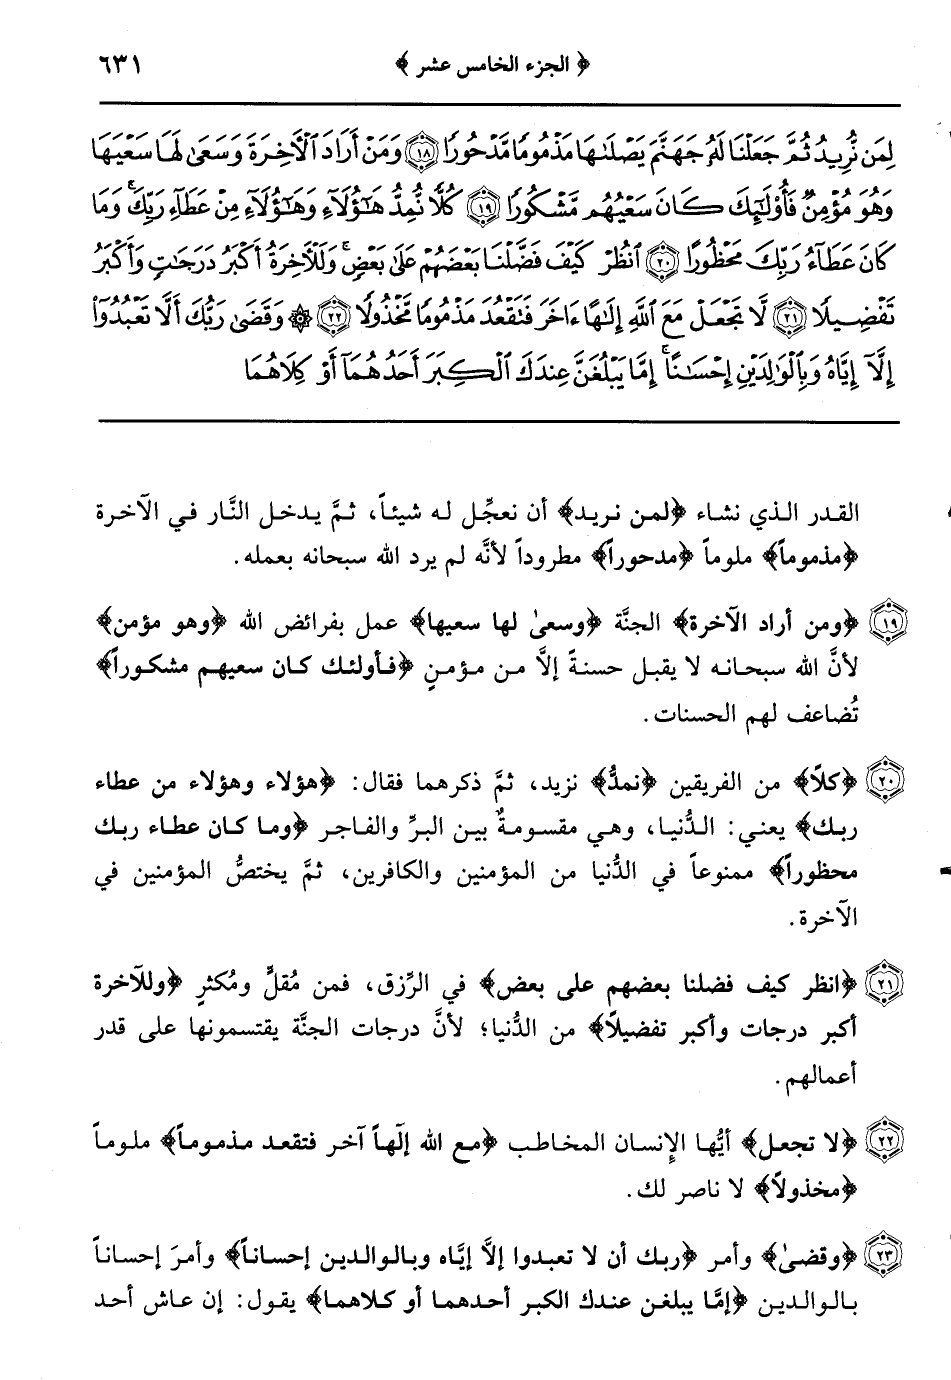 ﴿ الجزء الخامس عشر ﴾ ٦٣١
لِمَن نُّرِيدُ ثُمَّ جَعَلْنَا لَهُۥ جَهَنَّمَ يَصْلَىٰهَا مَذْمُومًا مَّدْحُورًا ١٨ وَمَنْ أَرَادَ ٱلْءَاخِرَةَ وَسَعَىٰ لَهَا سَعْيَهَا
وَهُوَ مُؤْمِنٌ فَأُو۟لَٰٓئِكَ كَانَ سَعْيُهُم مَّشْكُورًا ١٩ كُلًّا نُّمِدُّ هَٰٓؤُلَآءِ وَهَٰٓؤُلَآءِ مِنْ عَطَآءِ رَبِّكَ ۚ وَمَا
كَانَ عَطَآءُ رَبِّكَ مَحْظُورًا ٢٠ ٱنظُرْ كَيْفَ فَضَّلْنَا بَعْضَهُمْ عَلَىٰ بَعْضٍ ۚ وَلَلْءَاخِرَةُ أَكْبَرُ دَرَجَٰتٍ وَأَكْبَرُ
تَفْضِيلًا ٢١ لَّا تَجْعَلْ مَعَ ٱللَّهِ إِلَٰهًا ءَاخَرَ فَتَقْعُدَ مَذْمُومًا مَّخْذُولًا ٢٢ ۞ وَقَضَىٰ رَبُّكَ أَلَّا تَعْبُدُوٓا۟
إِلَّآ إِيَّاهُ وَبِٱلْوَٰلِدَيْنِ إِحْسَٰنًا ۚ إِمَّا يَبْلُغَنَّ عِندَكَ ٱلْكِبَرَ أَحَدُهُمَآ أَوْ كِلَاهُمَا
القدر الذي نشاء ﴿لمن نريد﴾ أن نعجِّل له شيئاً، ثمَّ يدخل النَّار في الآخرة
﴿مذموماً﴾ ملوماً ﴿مدحوراً﴾ مطروداً لأنَّه لم يرد الله سبحانه بعمله.
١٩ ﴿ومن أراد الآخرة﴾ الجنَّة ﴿وسعىٰ لها سعيها﴾ عمل بفرائض الله ﴿وهو مؤمن﴾
لأنَّ الله سبحانه لا يقبل حسنةً إلَّا من مؤمنٍ ﴿فأولئك كان سعيهم مشكوراً﴾
تُضاعف لهم الحسنات.
٢٠ ﴿كلاً﴾ من الفريقين ﴿نمدُّ﴾ نزيد، ثمَّ ذكرهما فقال: ﴿هؤلاء وهؤلاء من عطاء
ربك﴾ يعني: الدُّنيا، وهي مقسومةٌ بين البرِّ والفاجر ﴿وما كان عطاء ربك
محظوراً﴾ ممنوعاً في الدُّنيا من المؤمنين والكافرين، ثمَّ يختصُّ المؤمنين في
الآخرة.
٢١ ﴿انظر كيف فضلنا بعضهم على بعض﴾ في الرِّزق، فمن مُقلٍّ ومُكثرٍ ﴿وللآخرة
أكبر درجات وأكبر تفضيلاً﴾ من الدُّنيا؛ لأنَّ درجات الجنَّة يقتسمونها على قدر
أعمالهم.
٢٢ ﴿لا تجعل﴾ أيُّها الإنسان المخاطب ﴿مع الله إلَهاً آخر فتقعد مذموماً﴾ ملوماً
﴿مخذولاً﴾ لا ناصر لك.
٢٣ ﴿وقضىٰ﴾ وأمر ﴿ربك أن لا تعبدوا إلَّا إيَّاه وبالوالدين إحساناً﴾ وأمرَ إحساناً
بالوالدين ﴿إمَّا يبلغن عندك الكبر أحدهما أو كلاهما﴾ يقول: إن عاش أحد